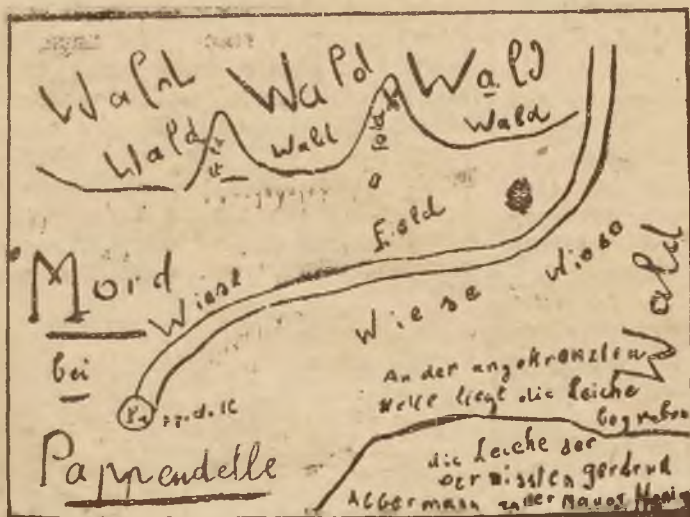 Wald Wald Wald
Wald Wald Wald
Feld
Mord
Wiese
Wiese
Wiese
Wald
bei
Pappendelle
An der angekreuzten
stelle liegt die Leiche
begraben
die Leiche der
vermissten gerdrud
Albermann an der Mauer